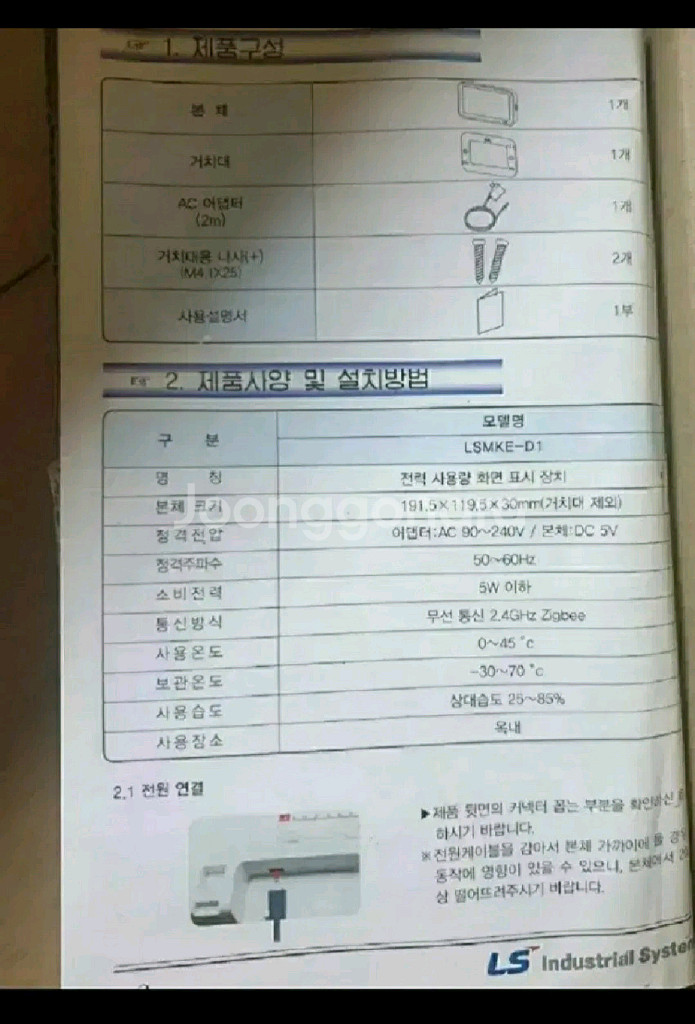 ☞ 1. 제품구성
본 체 1개
거치대 1개
AC 어댑터 1개
(2m)
거치대용 나사(+) 2개
(M4.1X25)
사용설명서 1부
☞ 2. 제품사양 및 설치방법
구 분 모델명
LSMKE-D1
명 칭 전력 사용량 화면 표시 장치
본체 크기 191.5×119.5×30mm(거치대 제외)
정격전압 어댑터:AC 90~240V / 본체:DC 5V
정격주파수 50~60Hz
소비전력 5W 이하
통신방식 무선 통신 2.4GHz Zigbee
사용온도 0~45 °c
보관온도 -30~70 °c
사용습도 상대습도 25~85%
사용장소 옥내
2.1 전원 연결
▶제품 뒷면의 커넥터 꼽는 부분을 확인하신
하시기 바랍니다.
※전원케이블을 감아서 본체 가까이에 둘 경
동작에 영향이 있을 수 있으니, 본체에서
상 떨어뜨려주시기 바랍니다.
LS Industrial System